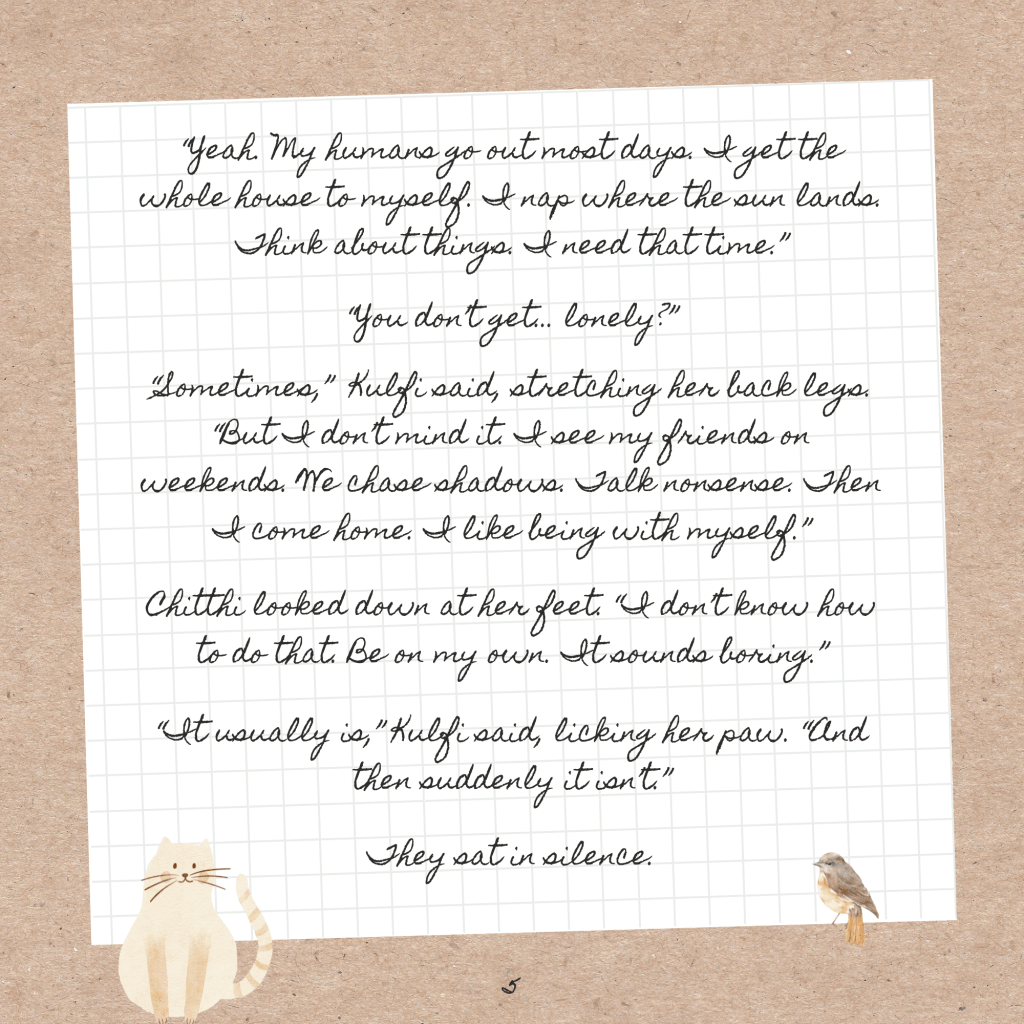 “Yeah. My humans go out most days. I get the
whole house to myself. I nap where the sun lands.
Think about things. I need that time.”
“You don’t get... lonely?”
“Sometimes,” Kulfi said, stretching her back legs.
“But I don’t mind it. I see my friends on
weekends. We chase shadows. Talk nonsense. Then
I come home. I like being with myself.”
Chitthi looked down at her feet. “I don’t know how
to do that. Be on my own. It sounds boring.”
“It usually is,” Kulfi said, licking her paw. “And
then suddenly it isn’t.”
They sat in silence.
5